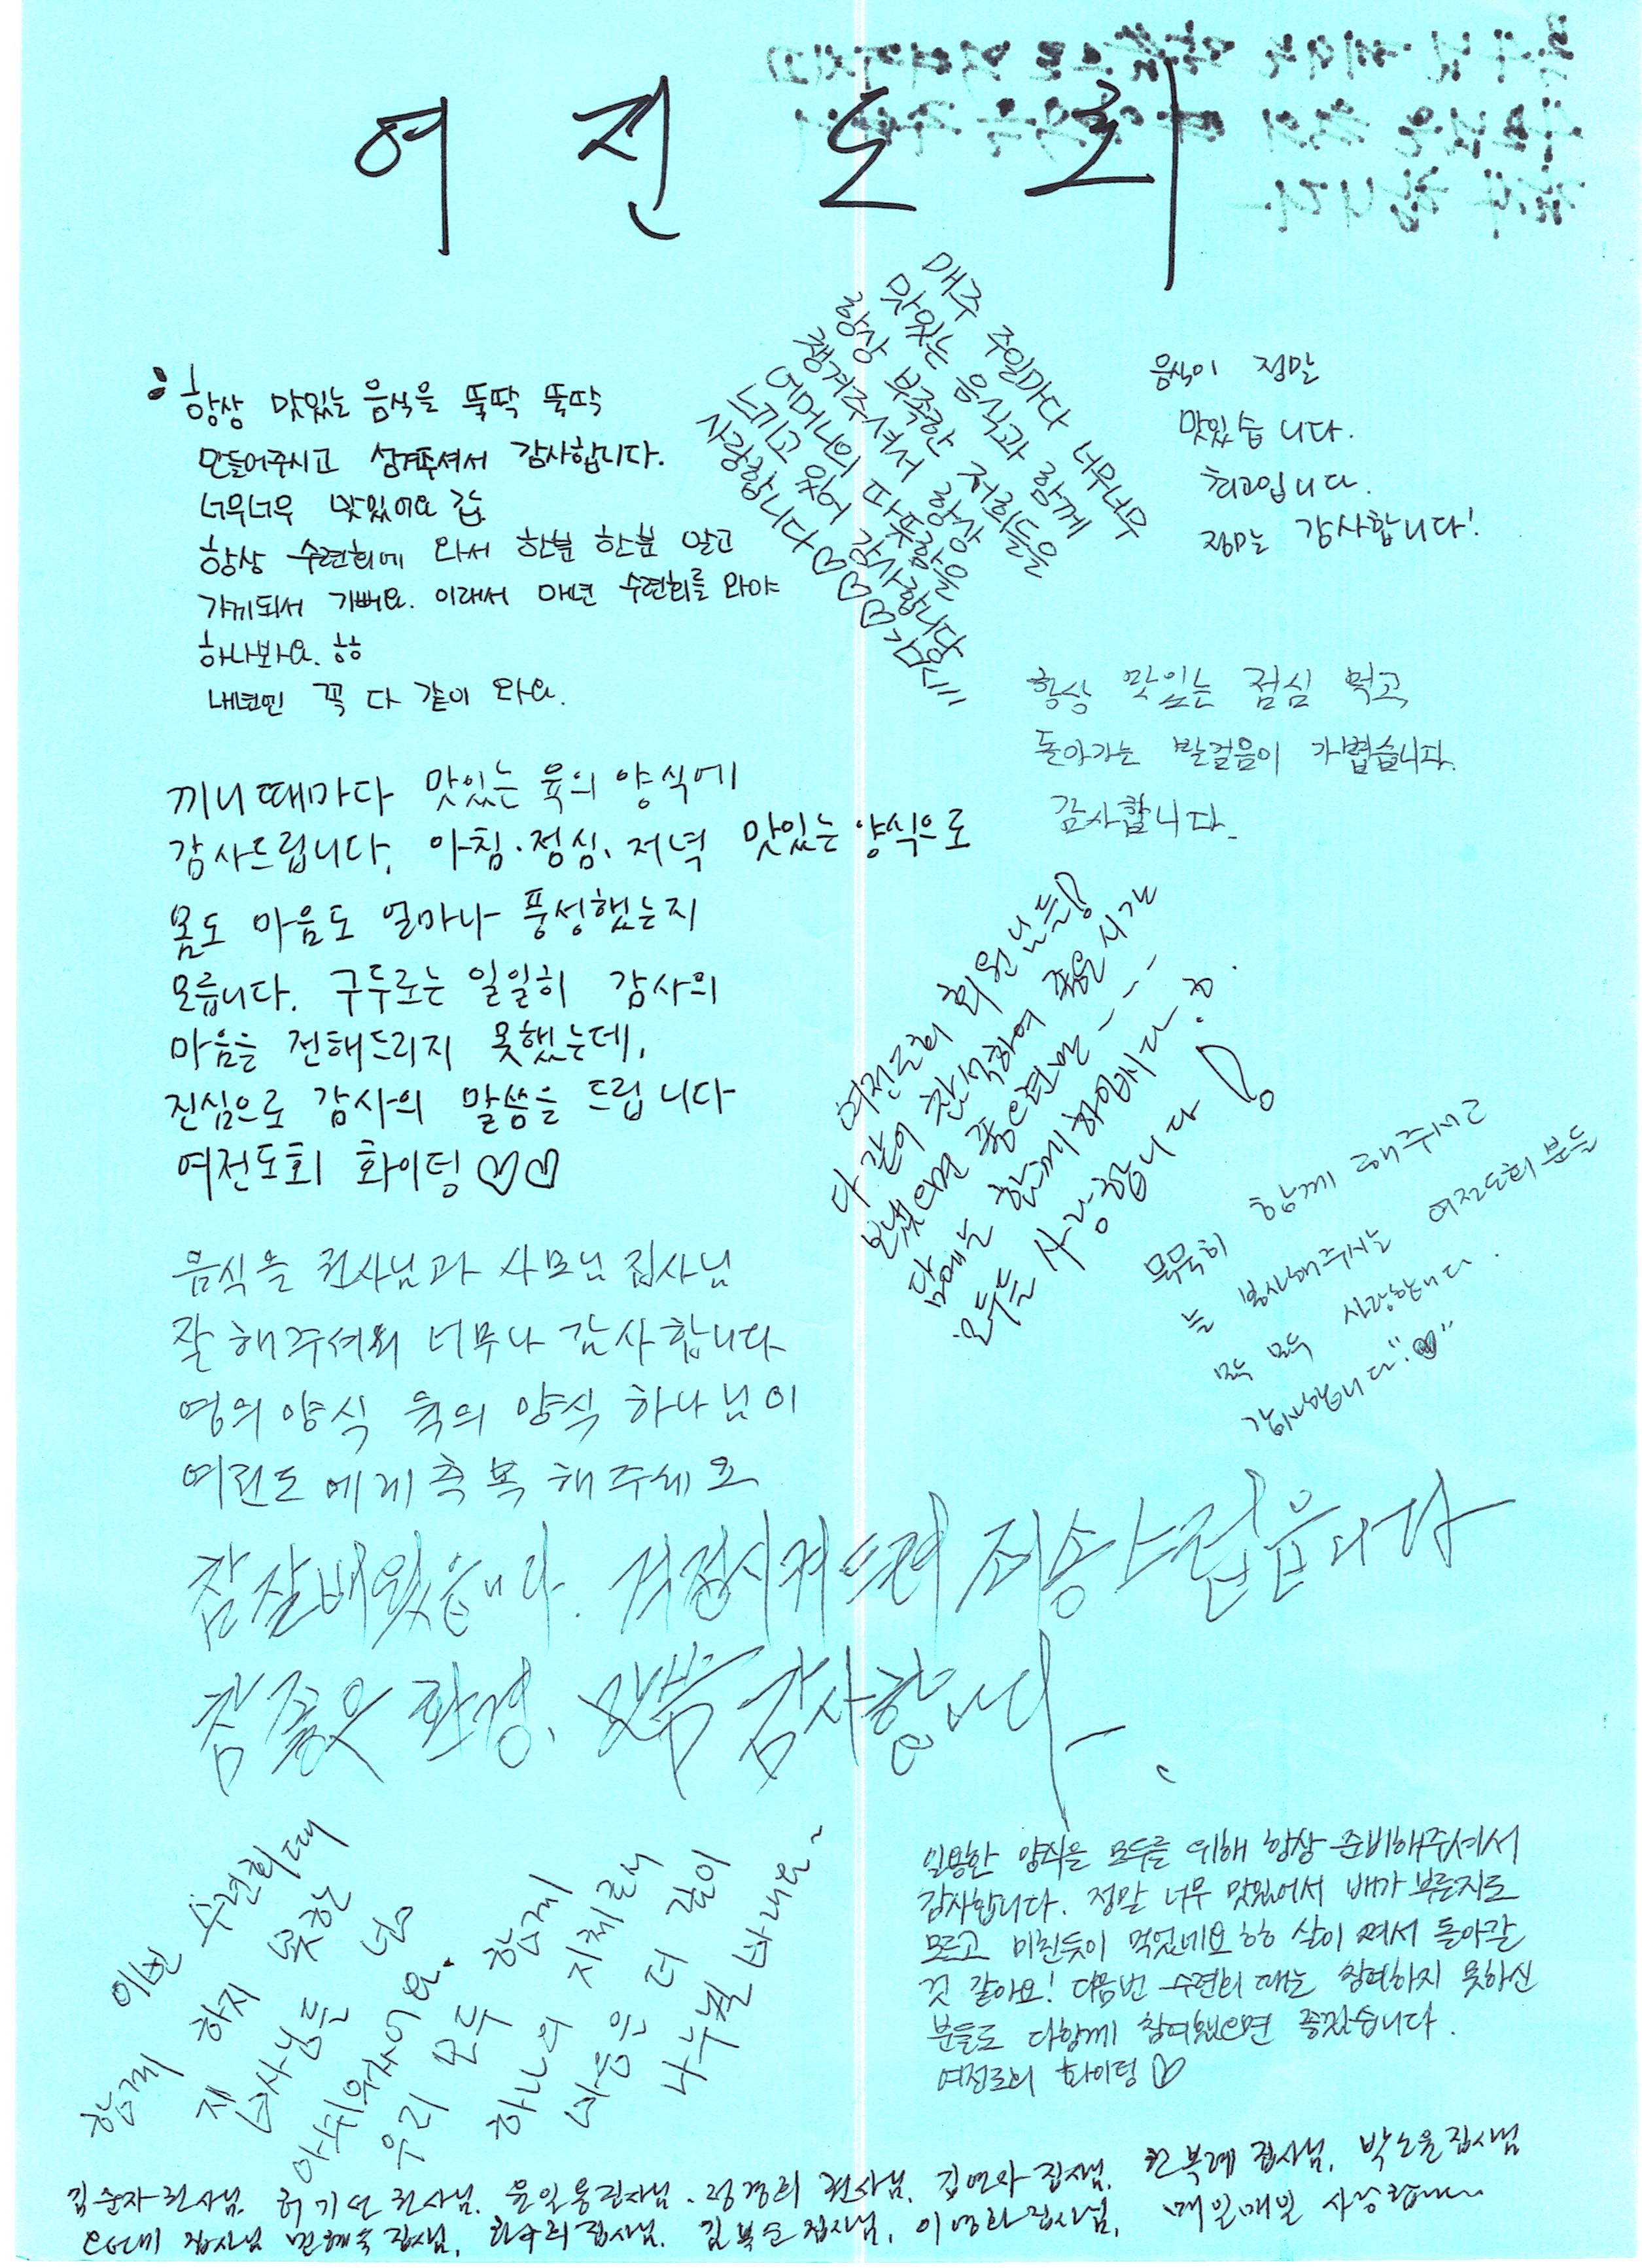 여전도회
항상 맛있는 음식을 뚝딱 뚝딱
만들어주시고 섬겨주셔서 감사합니다.
너무너무 맛있어요 굽
항상 수련회에 와서 한분 한분 알고
가게되서 기뻐요. 이래서 매년 수련회를 와야
하나봐요. ㅎㅎ
내년엔 꼭 다 같이 와요.
매주 주일마다 너무너무
맛있는 음식과 함께
항상 부족한 저희들을
챙겨주셔서 항상
어머니의 따뜻함을
느끼고 있어 감사합니다
사랑합니다♡♡♡
음식이 정말
맛있습니다.
최고입니다.
정말 감사합니다!
항상 맛있는 점심 먹고,
돌아가는 발걸음이 가볍습니다.
감사합니다.
끼니때마다 맛있는 육의 양식에
감사드립니다. 아침.점심.저녁 맛있는 양식으로
몸도 마음도 얼마나 풍성했는지
모릅니다. 구두로는 일일히 감사의
마음을 전해드리지 못했는데,
진심으로 감사의 말씀을 드립니다
여전도회 화이팅♡♡
여전도회 회원님들!
다 같이 참석하여 좋은 시간
보냈으면 좋으련만---
담에는 함께 하입시다.
모두들 사랑합니다!
묵묵히 함께 해주시고
늘 봉사해주시는 여전도회분들
모두 모두 사랑합니다.
감사합니다"♡"
음식을 권사님과 사모님 집사님
잘 해주셔서 너무나 감사합니다
영의 양식 육의 양식 하나님이
여전도에게 축복 해주세요
참 잘배웠습니다. 걱정시켜드려 죄송스럽습니다
참 좋은 환경, 말씀 감사합니다.
이번 수련회때
함께 하지 못한
집사님들 넘
아쉬워져어요.
우리 모두 함께
하나의 지체로서
마음은 더 같이
나누길 바래요~
일용한 양식을 모두를 위해 항상 준비해주셔서
감사합니다. 정말 너무 맛있어서 배가 부른지도
모르고 미친듯이 먹었네요 ㅎㅎ 살이 쪄서 돌아갈
것 같아요! 다음번 수련회 때는 참여하지 못하신
분들도 다함께 참여했으면 좋겠습니다.
여전도회 화이팅♡
김순자권사님. 허기선 권사님. 윤일용권사님. 정경희 권사님. 김연화 집사님. 한복례 집사님. 박노윤집사님
집사님 민혜숙집사님. 한수희집사님. 김복순집사님. 이영화집사님. 매일매일 사랑합니다